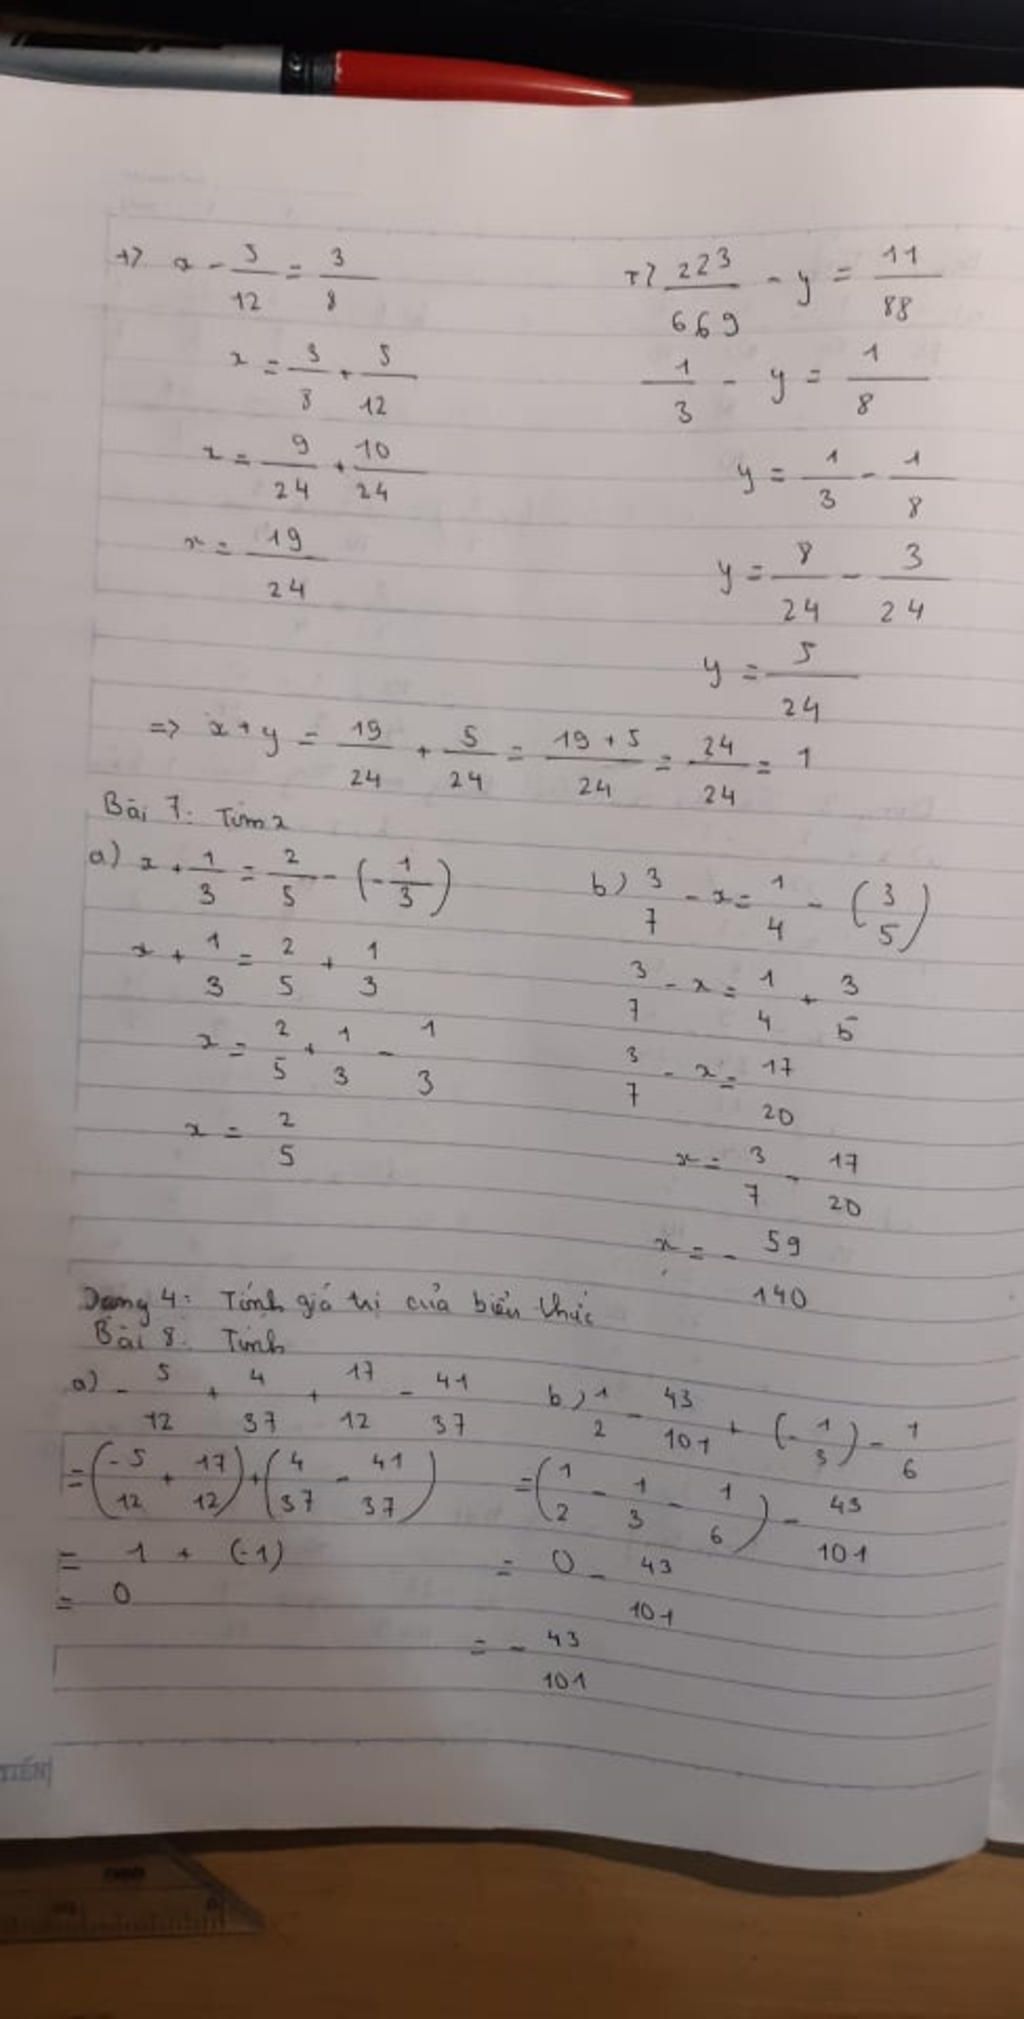 +) x - 5/12 = 3/8
x = 3/8 + 5/12
x = 9/24 + 10/24
x = 19/24
+) 223/669 - y = 11/88
1/3 - y = 1/8
y = 1/3 - 1/8
y = 8/24 - 3/24
y = 5/24
=> x + y = 19/24 + 5/24 = 19 + 5/24 = 24/24 = 1
Bài 7: Tìm x
a) x + 1/3 = 2/5 - (-1/3)
x + 1/3 = 2/5 + 1/3
x = 2/5 + 1/3 - 1/3
x = 2/5
b) 3/7 - x = 1/4 - (3/5)
3/7 - x = 1/4 + 3/5
3/7 - x = 17/20
x = 3/7 - 17/20
x = - 59/140
Dạng 4: Tính giá trị của biểu thức
Bài 8: Tính
a) - 5/12 + 4/37 + 17/12 - 41/37
= (-5/12 + 17/12) + (4/37 - 41/37)
= 1 + (-1)
= 0
b) 1/2 - 43/101 + (-1/3) - 1/6
= (1/2 - 1/3 - 1/6) - 43/101
= 0 - 43/101
= - 43/101